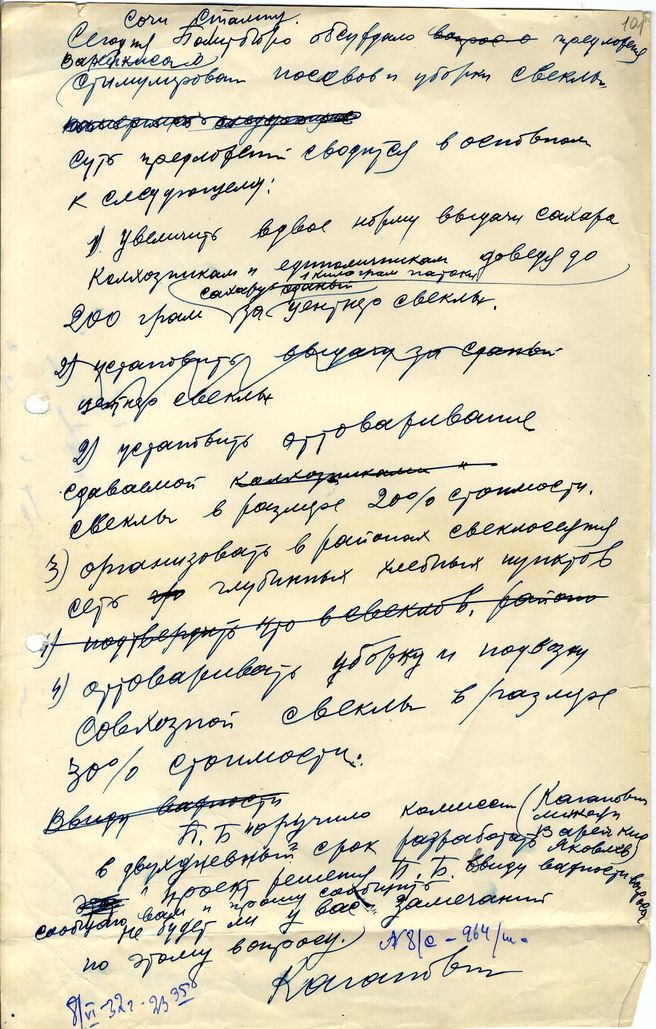 101
Сочи Сталину.
Сегодня Политбюро обсуждало вопрос о предложения
Варейкиса о
стимулировании посевов и уборки свеклы.
Суть предложений сводится в основном
к следующему:
1) Увеличить вдвое норму выдачи сахара
колхозникам и единоличникам доведя до
1 килограм патоки
сахару сданый
200 грам за центнер свеклы.
2) установить выдачу за сданый
центнер свеклы
2) установить отоваривание
сдаваемой колхозниками и
свеклы в размере 20% стоимости.
3) организовать в районах свеклосеяния
сеть глубинных хлебных пунктов
4) подтвердить что в свеклов. районо
4) отоваривать уборку и подвозку
Совхозной свеклы в размере
30% стоимости.
Ввиду важности
П.Б поручило комиссии (Каганович
Микоян
Варейкис
Яковлев)
в двухдневный срок разработать
проект решения П.Б. Ввиду важности вопроса
сообщаю вам и прошу сообщить
не будет ли у вас замечаний
по этому вопросу.
N 8/с - 964/ш.
Каганович
8/VI-32г-23 35